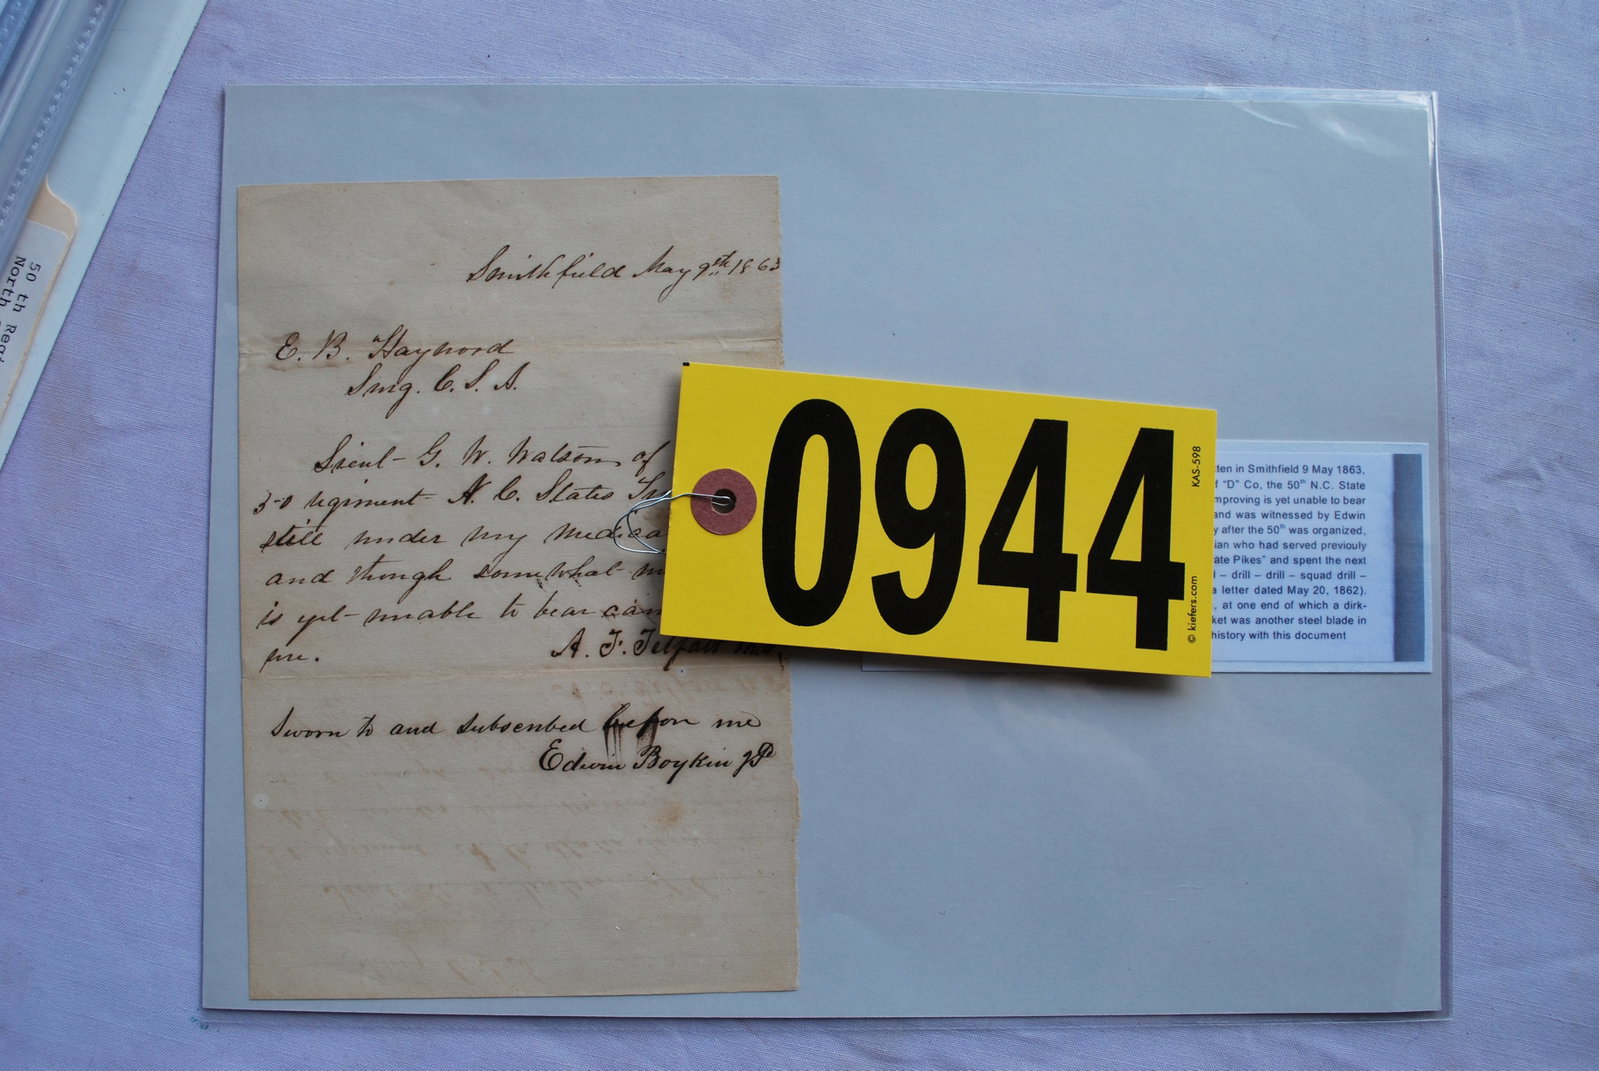 Smithfield May 9th 1863
E. B. Haywood
Surg. C. S. A.
Lieut G. W. Watson of
50 regiment N. C. States
still under my medica
and though somewhat
is yet unable to bear
me.
A. F. Telfair
Sworn to and subscribed before me
Edwin Boykin JP
0944
KAS-598
© kiefers.com
tten in Smithfield 9 May 1863.
f "D" Co, the 50th N.C. State
mproving is yet unable to bear
and was witnessed by Edwin
y after the 50th was organized,
ian who had served previouly
ate Pikes" and spent the next
l – drill – drill – squad drill –
a letter dated May 20, 1862).
, at one end of which a dirk-
ket was another steel blade in
history with this document
50 th Regi
North